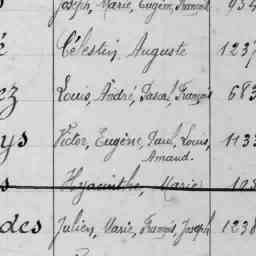 Joseph, Marie, Eugène, François 934
é Célestin Auguste 1237
ez Louis, André, Pascal, François 683
ys Victor, Eugène, Paul, Louis, 1133
Amand.
s Hyacinthe, Marie
des Julien, Marie, François, Joseph 1238